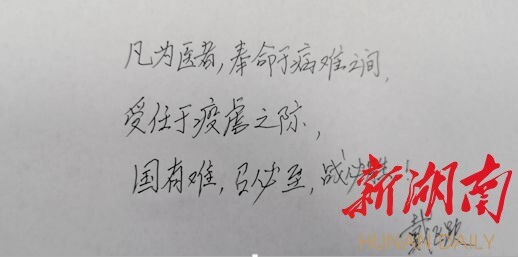 凡为医者,奉命于病难之间,
受任于疫虐之际,
国有难,召必至,战必胜!
新湖南
HUNAN DAILY
戴飞跃